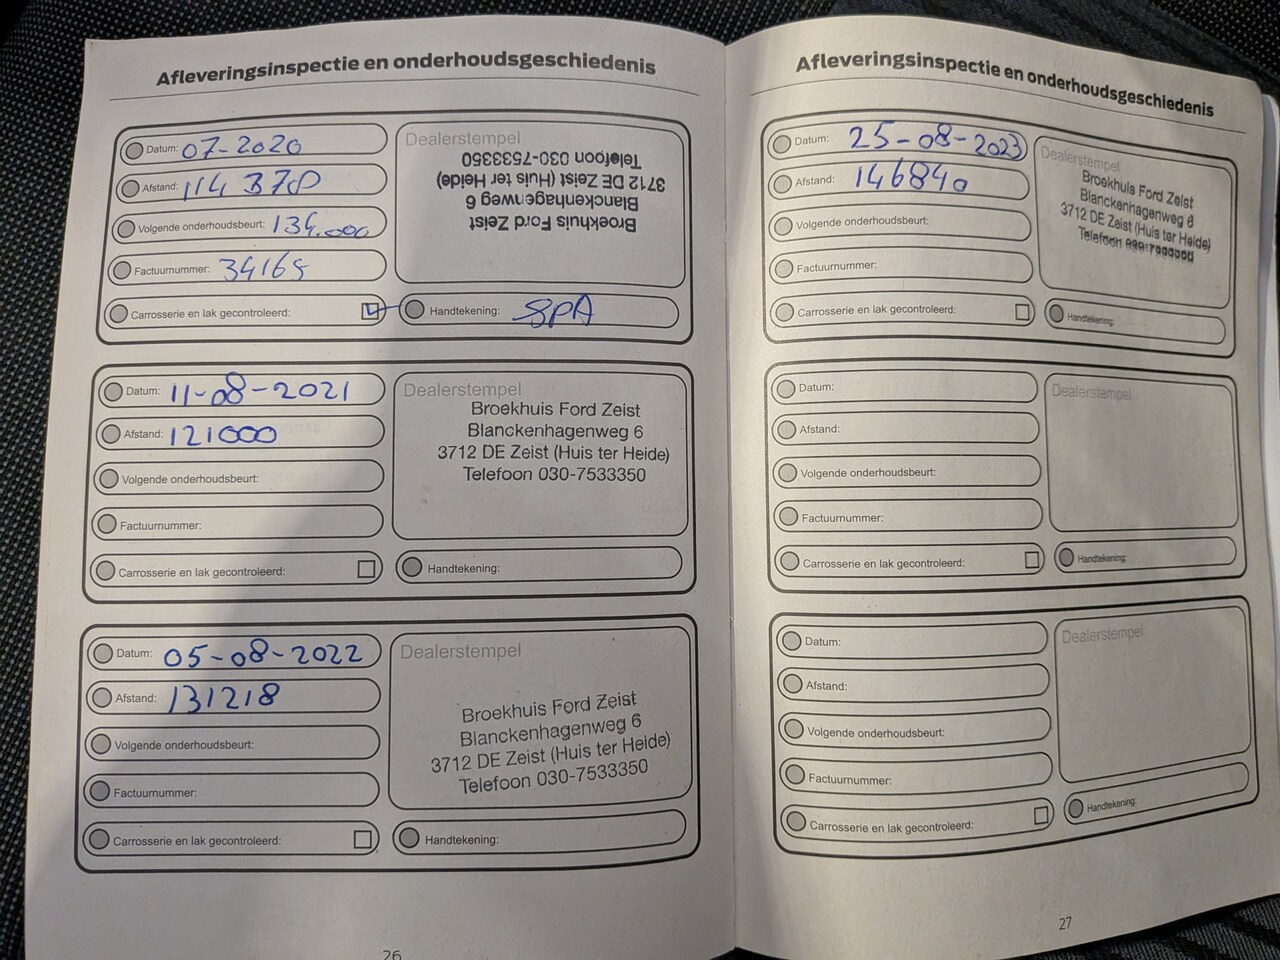 Afleveringsinspectie en onderhoudsgeschiedenis
Datum: 07-2020
Afstand: 114 370
Volgende onderhoudsbeurt: 134.000
Factuurnummer: 34165
Carrosserie en lak gecontroleerd:
Dealerstempel
Broekhuis Ford Zeist
Blanckenhagenweg 6
3712 DE Zeist (Huis ter Heide)
Telefoon 030-7533350
Handtekening: SPA
Datum: 11-08-2021
Afstand: 121000
Volgende onderhoudsbeurt:
Factuurnummer:
Carrosserie en lak gecontroleerd:
Dealerstempel
Broekhuis Ford Zeist
Blanckenhagenweg 6
3712 DE Zeist (Huis ter Heide)
Telefoon 030-7533350
Handtekening:
Datum: 05-08-2022
Afstand: 131218
Volgende onderhoudsbeurt:
Factuurnummer:
Carrosserie en lak gecontroleerd:
Dealerstempel
Broekhuis Ford Zeist
Blanckenhagenweg 6
3712 DE Zeist (Huis ter Heide)
Telefoon 030-7533350
Handtekening:
26
Afleveringsinspectie en onderhoudsgeschiedenis
Datum: 25-08-2023
Afstand: 146840
Volgende onderhoudsbeurt:
Factuurnummer:
Carrosserie en lak gecontroleerd:
Dealerstempel
Broekhuis Ford Zeist
Blanckenhagenweg 6
3712 DE Zeist (Huis ter Heide)
Telefoon
Handtekening:
Datum:
Afstand:
Volgende onderhoudsbeurt:
Factuurnummer:
Carrosserie en lak gecontroleerd:
Dealerstempel
Handtekening:
Datum:
Afstand:
Volgende onderhoudsbeurt:
Factuurnummer:
Carrosserie en lak gecontroleerd:
Dealerstempel
Handtekening:
27